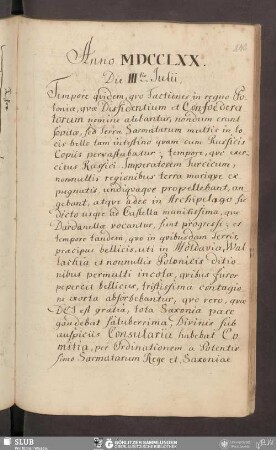 Anno MDCCLXX.
Die IIItio Julii,
Tempore quidem, quo Factiones in regno Po-
lonia, quæ Dissidentium et Confoedera-
torum nomine utebantur, nondum erant
sopitæ, sed Terra Sarmatarum multis in lo-
cis bello tam intestino quam cum Russicis
Copiis pervastabatur; tempore, quo exer-
citus Russici Imperatorem turcicum,
nonnullis regionibus terra marique ex-
pugnatis, undiquaque propellebant, an-
gebant, atque adeo in Archipelago sic
dicto usque ad Castella munitissima, quæ
Dardanellæ vocantur, sunt progressi, et
tempore tandem quo in quibusdam terris,
præcipue bellicis, uti in Moldavia, Wal-
lachia et nonnullis Polonicis ditio-
nibus permulti incolæ, quibus furor
pepercit bellicus, tristissima contagio-
ne exorta absorbebantur, quo vero, quæ
DEI est gratia, tota Saxonia pace
gaudebat saluberrima, Divinis sub
auspiciis Consularia habebat Co-
mitia, per Ordinationem a Potentis-
simo Sarmatarum Rege et Saxoniæ
SLUB
Wir führen Wissen.
GÖRLITZER SAMMLUNGEN
OBERLAUSITZISCHE BIBLIOTHEK